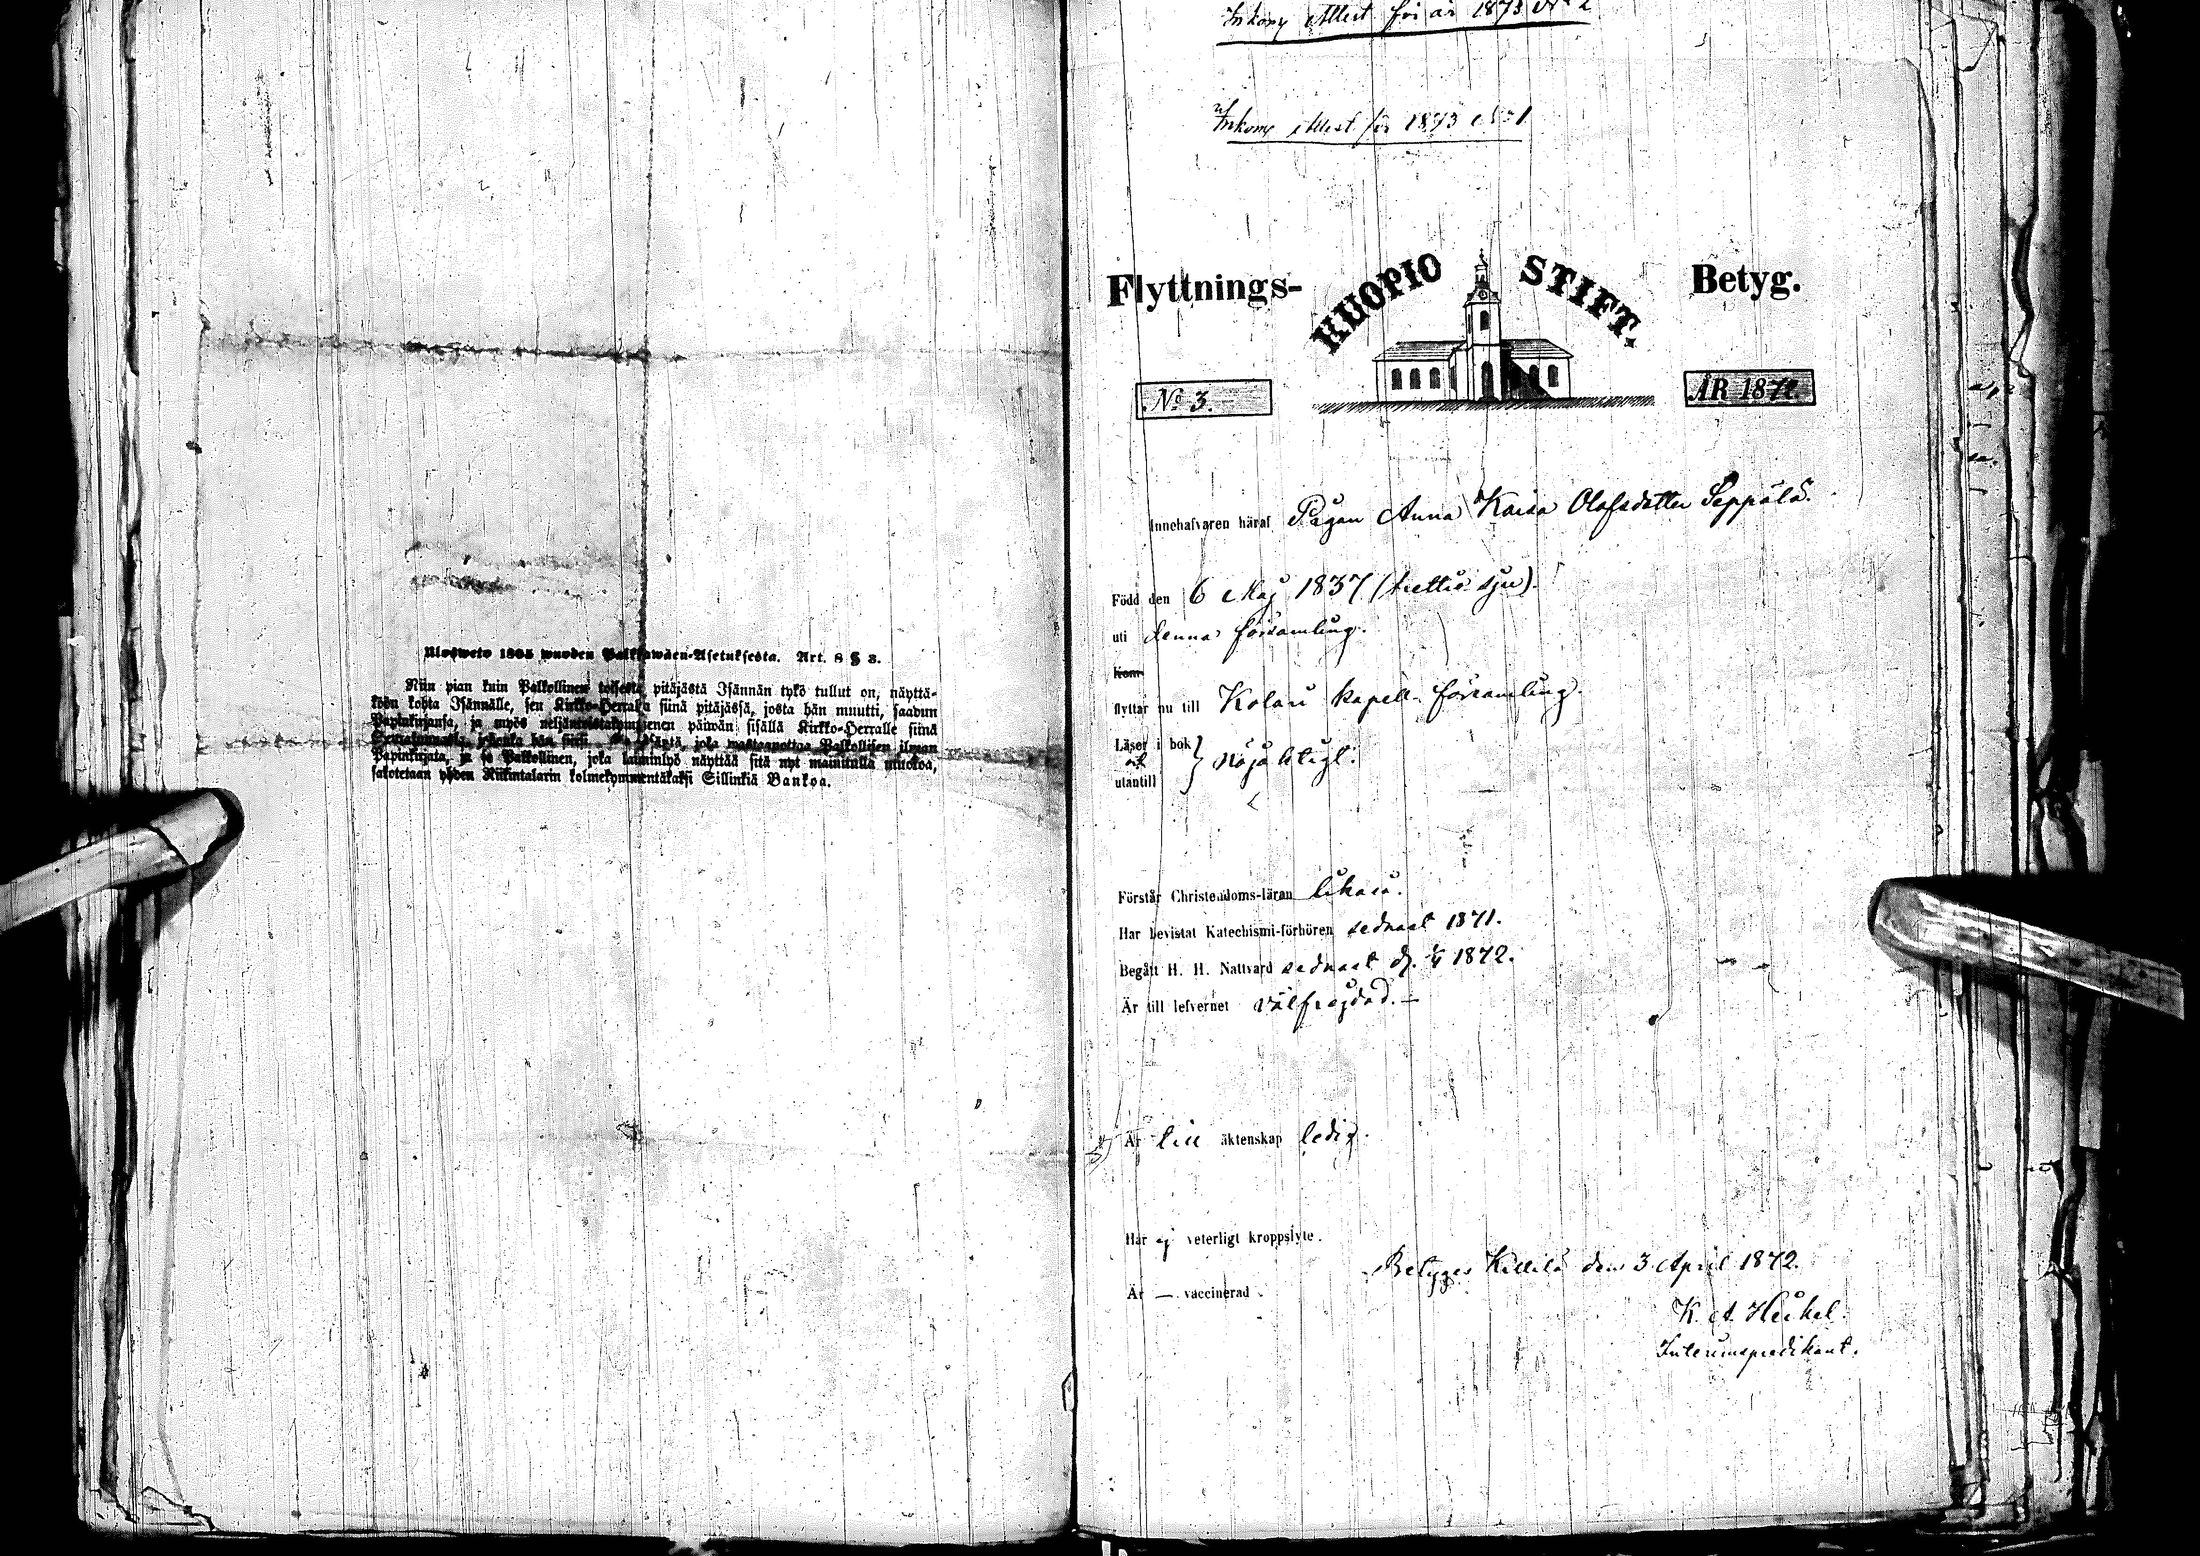 Ulosweto 1805 wuoden Palkkawäen-Asetuksesta. Art. 8 § 3.
Niin pian kuin Palkollinen toisesta pitäjästä Isännän tykö tullut on, näyttä-
köön kohta Isännälle, sen Kirkko-Herralta siinä pitäjässä, josta hän muutti, saadun
Papinkirjansa, ja myös neljäntoistakymmenen päiwän sisällä Kirkko-Herralle siinä
joka wastaanottaa Palkollisen ilman
Papinkirjata, ja se Palkollinen, joka laiminlyö näyttää sitä nyt mainitulla muotoa,
sakotetaan yhden Riikintalarin kolmekymmentäkaksi Sillinkiä Bankoa.
Inkomn Attest för år 1873 No 2
Inkomn Attest för 1873 No 1
Flyttnings- KUOPIO STIFT. Betyg.
No 3. ÅR 1872.
Innehafvaren häraf Pigan Anna Kaisa Olofsdotter Seppälä.
Född den 6 Maj 1837 (trettio sju).
uti denna församling.
Kom
flyttar nu till Kolari kapell-församling.
Läser i bok
och nöjaktigt.
utantill
Förstår Christendoms-läran likaså.
Har bevistat Katechismi-förhören sednast 1871.
Begått H. H. Nattvard sednast d. 1/4 1872.
Är till lefvernet välfrejdad.—
Är till äktenskap ledig.
Har ej veterligt kroppslyte.
Betygas Kittilä den 3 April 1872.
Är — vaccinerad.
K. A. Heikel.
Interimspredikant.